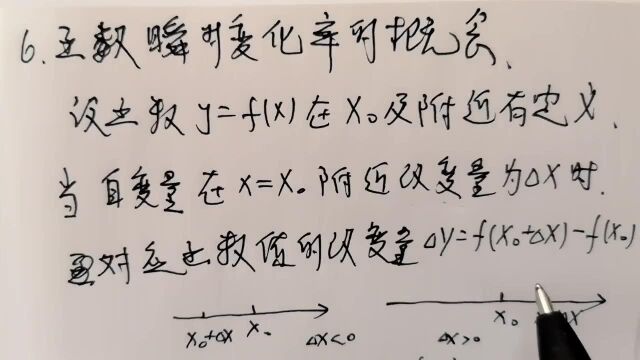 6.函数瞬时变化率的概念、
设函数y=f(x)在x₀及附近有定义、
当自变量在x=x₀附近改变量为Δx时.
对应函数值的改变量Δy=f(x₀+Δx)-f(x₀)
x₀+Δx x₀ Δx<0 Δx>0 x₀